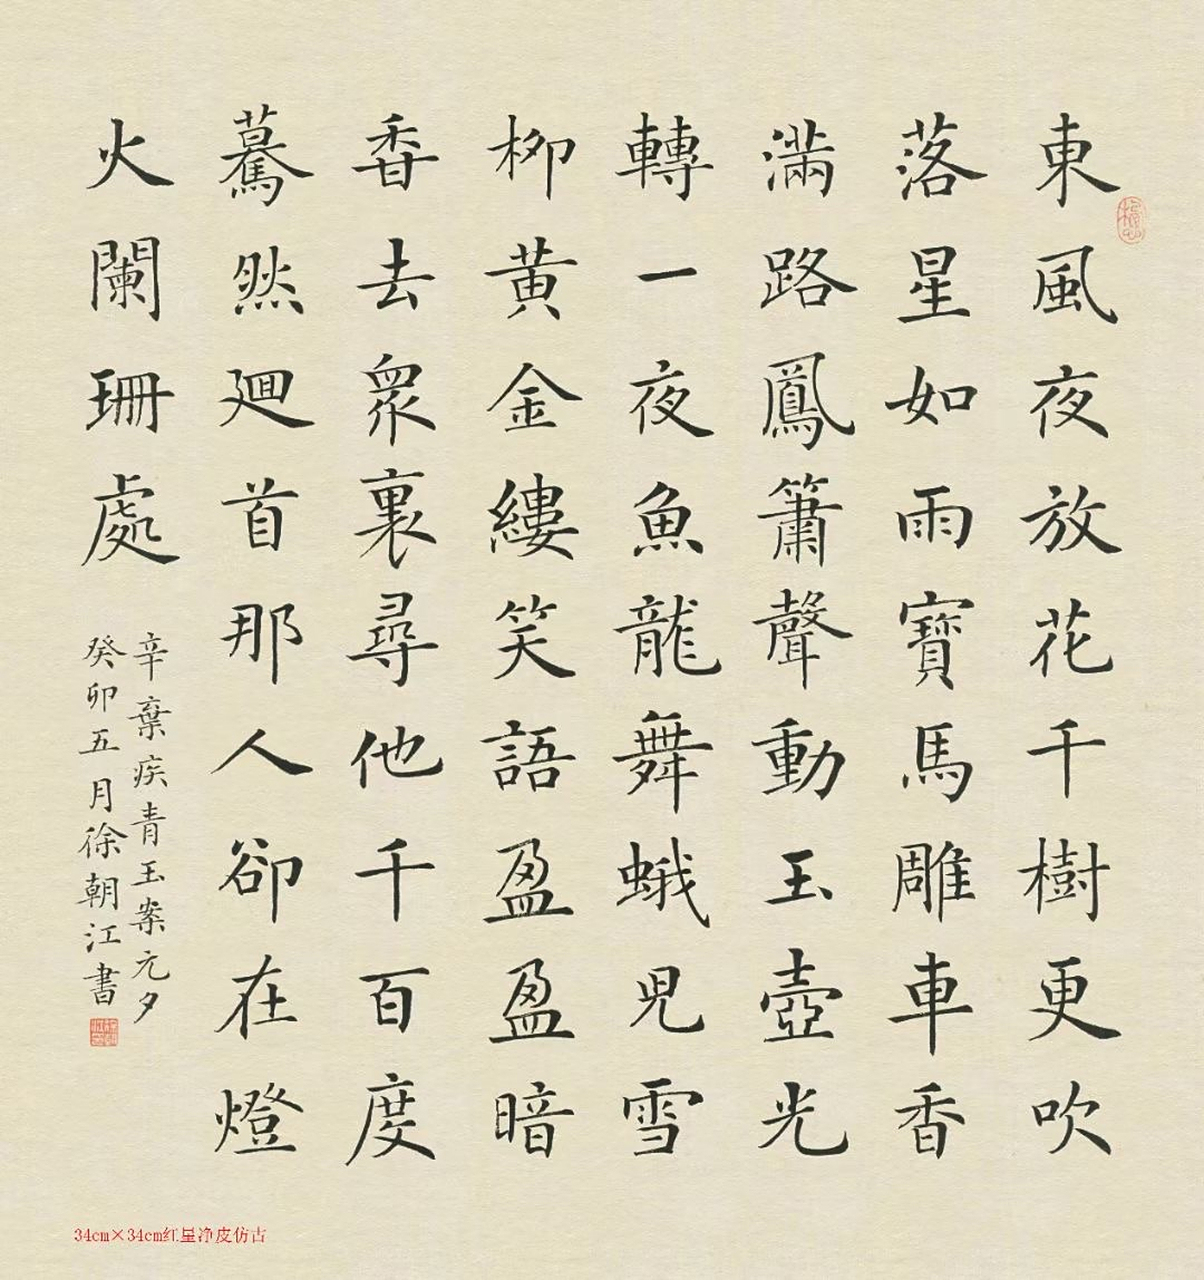 東風夜放花千樹更吹
落星如雨寶馬雕車香
滿路鳳簫聲動玉壺光
轉一夜魚龍舞蛾兒雪
柳黃金縷笑語盈盈暗
香去衆裏尋他千百度
驀然廻首那人卻在燈
火闌珊處
辛棄疾青玉案元夕
癸卯五月徐朝江書
34cm×34cm红星净皮仿古